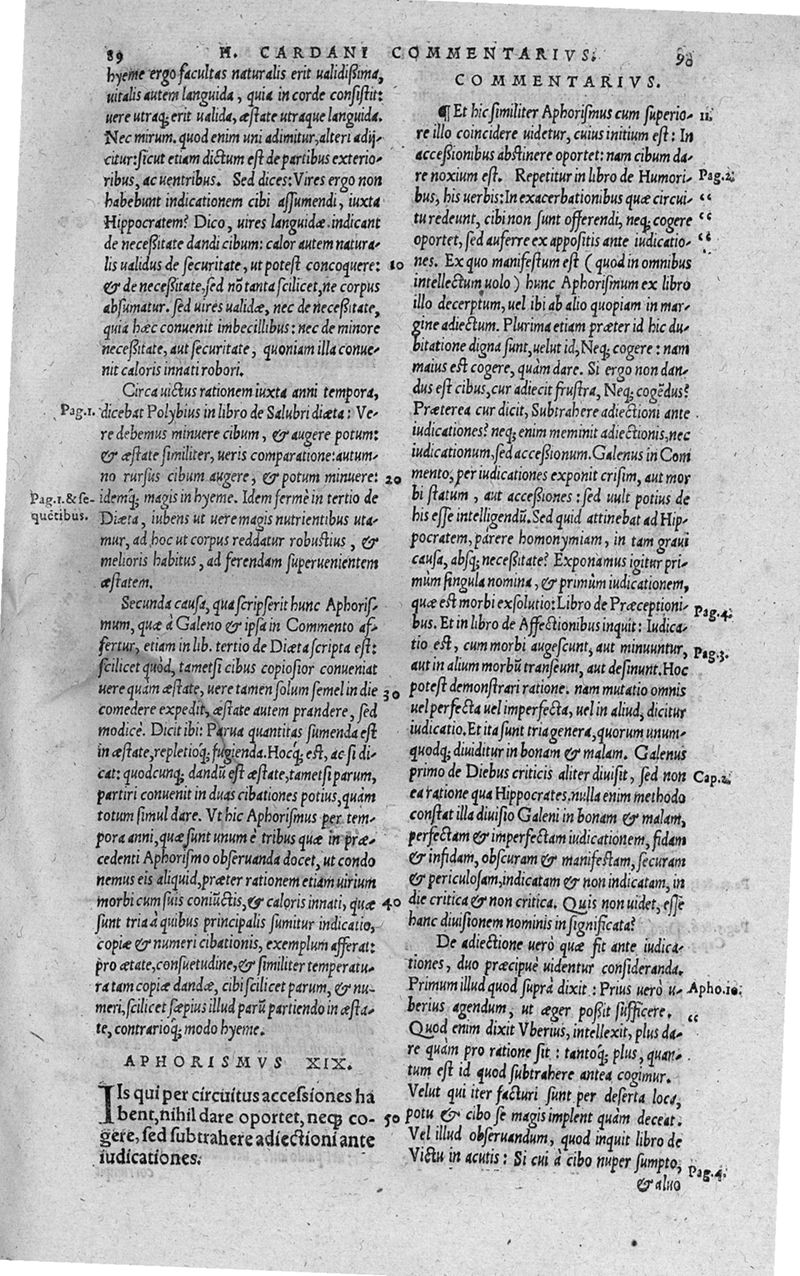 89 H. CARDANI COMMENTARIVS. 90
hyeme ergo facultas naturalis erit ualidißima,
uitalis autem languida, quia in corde consistit:
uere utraq; erit ualida, æstate utraque languida.
Nec mirum. quod enim uni adimitur, alteri adij-
citur: sicut etiam dictum est de partibus exterio-
ribus, ac uentribus. Sed dices: Vires ergo non
habebunt indicationem cibi assumendi, iuxta
Hippocratem? Dico, uires languidæ indicant
de neceßitate dandi cibum: calor autem natura-
lis ualidus de securitate, ut potest concoquere: 10
& de neceßitate, sed nō tanta scilicet, ne corpus
absumatur. sed uires ualidæ, nec de neceßitate,
quia hæc conuenit imbecillibus: nec de minore
neceßitate, aut securitate, quoniam illa conue-
nit caloris innati robori.
Circa uictus rationem iuxta anni tempora,
Pag.1. dicebat Polybius in libro de Salubri diæta: Ve-
re debemus minuere cibum, & augere potum:
& æstate similiter, ueris comparatione: autum-
no rursus cibum augere, & potum minuere: 20
Pag.1. & se- idemq; magis in hyeme. Idem fermè in tertio de
quētibus. Diæta, iubens ut uere magis nutrientibus uta-
mur, ad hoc ut corpus reddatur robustius, &
melioris habitus, ad ferendam superuenientem
æstatem.
Secunda causa, qua scripserit hunc Aphoris-
mum, quæ à Galeno & ipsa in Commento af-
fertur, etiam in lib. tertio de Diæta scripta est:
scilicet quòd, tametsi cibus copiosior conueniat
uere quàm æstate, uere tamen solum semel in die 30
comedere expedit, æstate autem prandere, sed
modicè. Dicit ibi: Parua quantitas sumenda est
in æstate, repletioq; fugienda. Hocq; est, ac si di-
cat: quodcunq; dandū est æstate, tametsi parum,
partiri conuenit in duas cibationes potius, quàm
totum simul dare. Vt hic Aphorismus per tem-
pora anni, quæ sunt unum è tribus quæ in præ-
cedenti Aphorismo obseruanda docet, ut condo
nemus eis aliquid, præter rationem etiam uirium
morbi cum suis coniūctis, & caloris innati, quæ 40
sunt tria à quibus principalis sumitur indicatio,
copiæ & numeri cibationis, exemplum afferat:
pro ætate, consuetudine, & similiter temperatu-
ra tam copiæ dandæ, cibi scilicet parum, & nu-
meri, scilicet sæpius illud parū partiendo in æsta-
te, contrarioq; modo hyeme.
APHORISMVS XIX.
IIs qui per circuitus accessiones ha
bent, nihil dare oportet, neq; co- 50
gere, sed subtrahere adiectioni ante
iudicationes.
COMMENTARIVS.
¶ Et hic similiter Aphorismus cum superio- 11.
re illo coincidere uidetur, cuius initium est: In
accessionibus abstinere oportet: nam cibum da-
re noxium est. Repetitur in libro de Humori- Pag.2.
bus, his uerbis: In exacerbationibus quæ circui- “
tu redeunt, cibi non sunt offerendi, neq; cogere “
oportet, sed auferre ex appositis ante iudicatio- “
nes. Ex quo manifestum est (quod in omnibus
intellectum uolo) hunc Aphorismum ex libro
illo decerptum, uel ibi ab alio quopiam in mar-
gine adiectum. Plurima etiam præter id hic du-
bitatione digna sunt, uelut id, Neq; cogere: nam
maius est cogere, quàm dare. Si ergo non dan-
dus est cibus, cur adiecit frustra, Neq; cogēdus?
Præterea cur dicit, Subtrahere adiectioni ante
iudicationes? neq; enim meminit adiectionis, nec
iudicationum, sed accessionum. Galenus in Com
mento, per iudicationes exponit crisim, aut mor
bi statum, aut accessiones: sed uult potius de
his esse intelligendū. Sed quid attinebat ad Hip-
pocratem, parere homonymiam, in tam graui
causa, absq; neceßitate? Exponamus igitur pri-
mùm singula nomina, & primùm iudicationem,
quæ est morbi exsolutio: Libro de Præceptioni- Pag.4.
bus. Et in libro de Affectionibus inquit: Iudica-
tio est, cum morbi augescunt, aut minuuntur, Pag.3.
aut in alium morbū transeunt, aut desinunt. Hoc
potest demonstrari ratione. nam mutatio omnis
uel perfecta uel imperfecta, uel in aliud, dicitur
iudicatio. Et ita sunt tria genera, quorum unum-
quodq; diuiditur in bonam & malam. Galenus
primo de Diebus criticis aliter diuisit, sed non Cap.2.
ea ratione qua Hippocrates. nulla enim methodo
constat illa diuisio Galeni in bonam & malam,
perfectam & imperfectam iudicationem, fidam
& infidam, obscuram & manifestam, securam
& periculosam, indicatam & non indicatam, in
die critica & non critica. Quis non uidet, esse
hanc diuisionem nominis in significata?
De adiectione uerò quæ fit ante iudica-
tiones, duo præcipuè uidentur consideranda.
Primum illud quod suprà dixit: Prius uerò u- Apho.10.
berius agendum, ut æger poßit sufficere. “
Quod enim dixit Vberius, intellexit, plus da-
re quàm pro ratione sit: tantoq; plus, quan-
tum est id quod subtrahere antea cogimur.
Velut qui iter facturi sunt per deserta loca,
potu & cibo se magis implent quàm deceat.
Vel illud obseruandum, quod inquit libro de
Victu in acutis: Si cui à cibo nuper sumpto, Pag.4.
& aluo